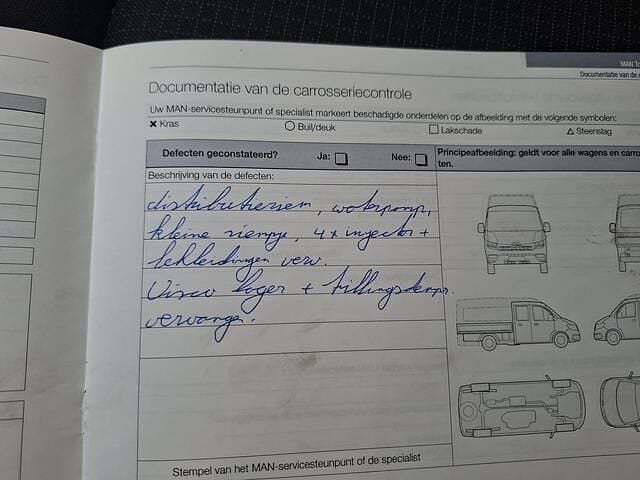 MAN
Documentatie van de
Documentatie van de carrosseriecontrole
Uw MAN-servicesteunpunt of specialist markeert beschadigde onderdelen op de afbeelding met de volgende symbolen:
Kras Buil/deuk Lakschade Steenslag
Defecten geconstateerd? Ja: Nee:
Principeafbeelding: geldt voor alle wagens en
ten.
Beschrijving van de defecten:
distributieriem, waterpomp,
kleine riempje, 4x injector +
lekleidingen verv.
Visco lager + trillingsdemper
vervangen.
Stempel van het MAN-servicesteunpunt of de specialist